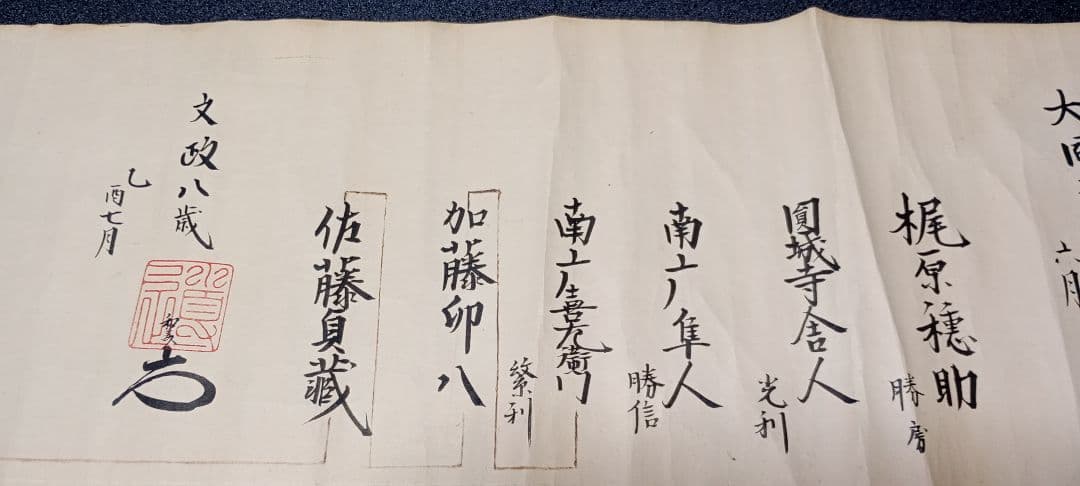 大同
六月
梶原穂助
勝房
圓城寺舎人
光利
南部隼人
勝信
南部喜左衛門
繁利
加藤卯八
佐藤貞蔵
文政八歳
乙酉七月